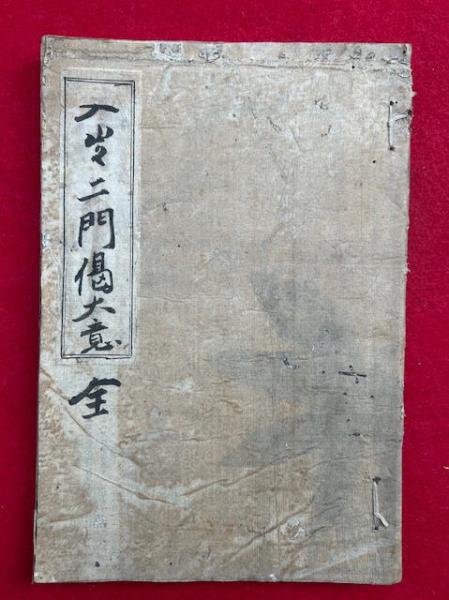 入出二門偈大意 全